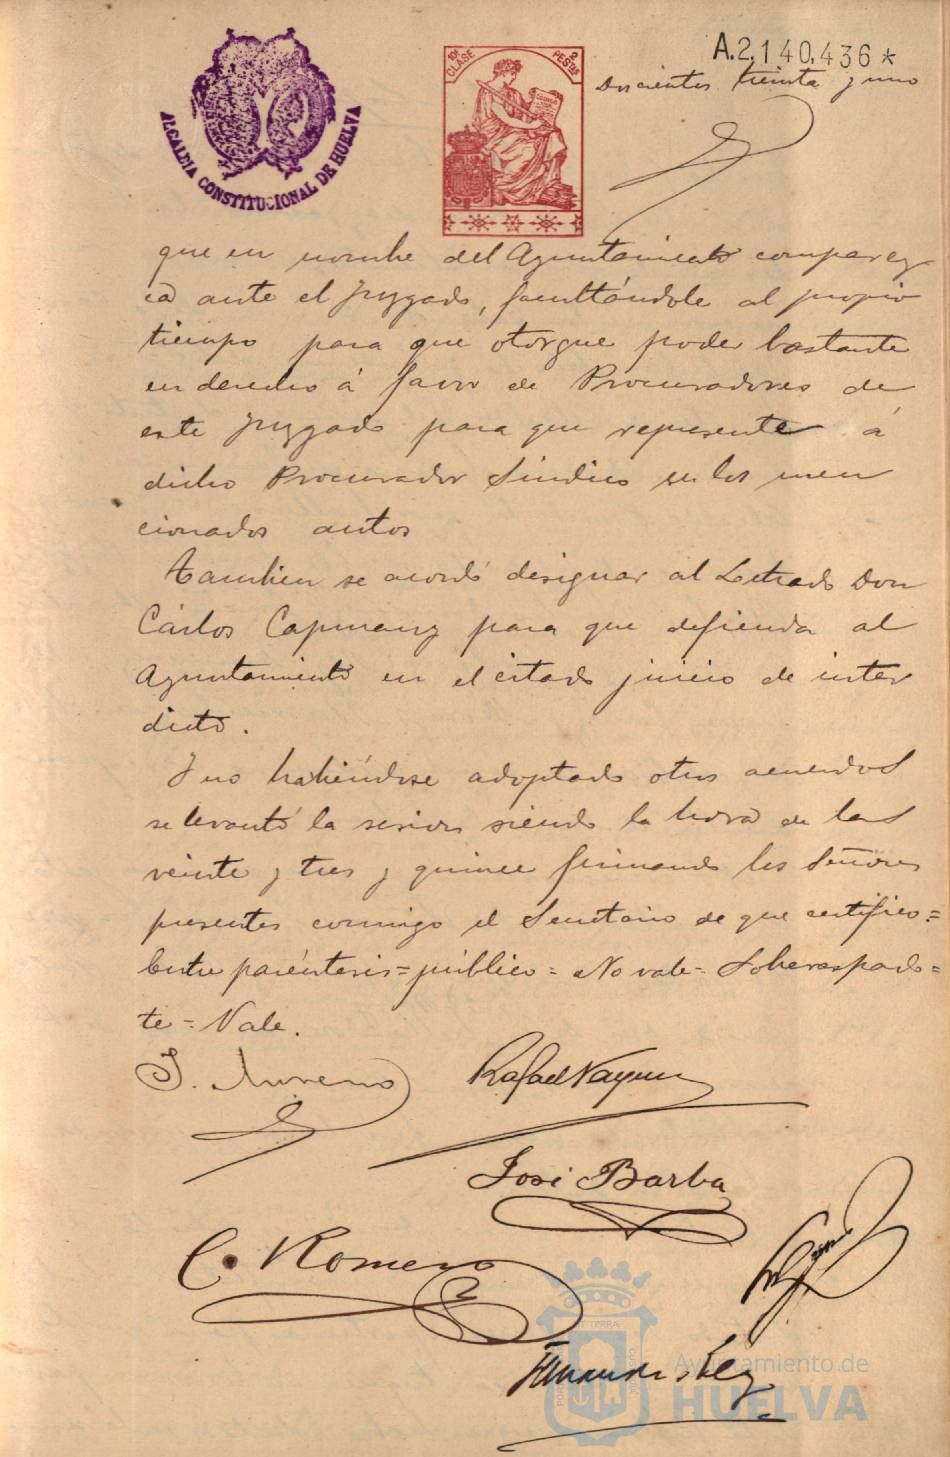 ALCALDIA CONSTITUCIONAL DE HUELVA
10ª CLASE
2 PESTAS
A.2,140,436 *
Doscientos treinta y uno
que en nombre del Ayuntamiento comparez
ca ante el Juzgado, facultándole al propio
tiempo para que otorgue poder bastante
en derecho á favor de Procuradores de
este Juzgado para que represente á
dicho Procurador Síndico en los men
cionados autos
Tambien se acordó designar al Letrado Don
Cárlos Capmany para que defienda al
Ayuntamiento en el citado juicio de inter
dicto.
Y no habiéndose adoptado otros acuerdos
se levantó la sesion siendo la hora de las
veinte y tres y quince firmando los Señores
presentes conmigo el Secretario de que certifico.=
Entre paréntesis=público=No vale=Sobreraspado=
te=Vale.
J. Moreno
Rafael
José Barba
C. Romero
Ayuntamiento de
HUELVA